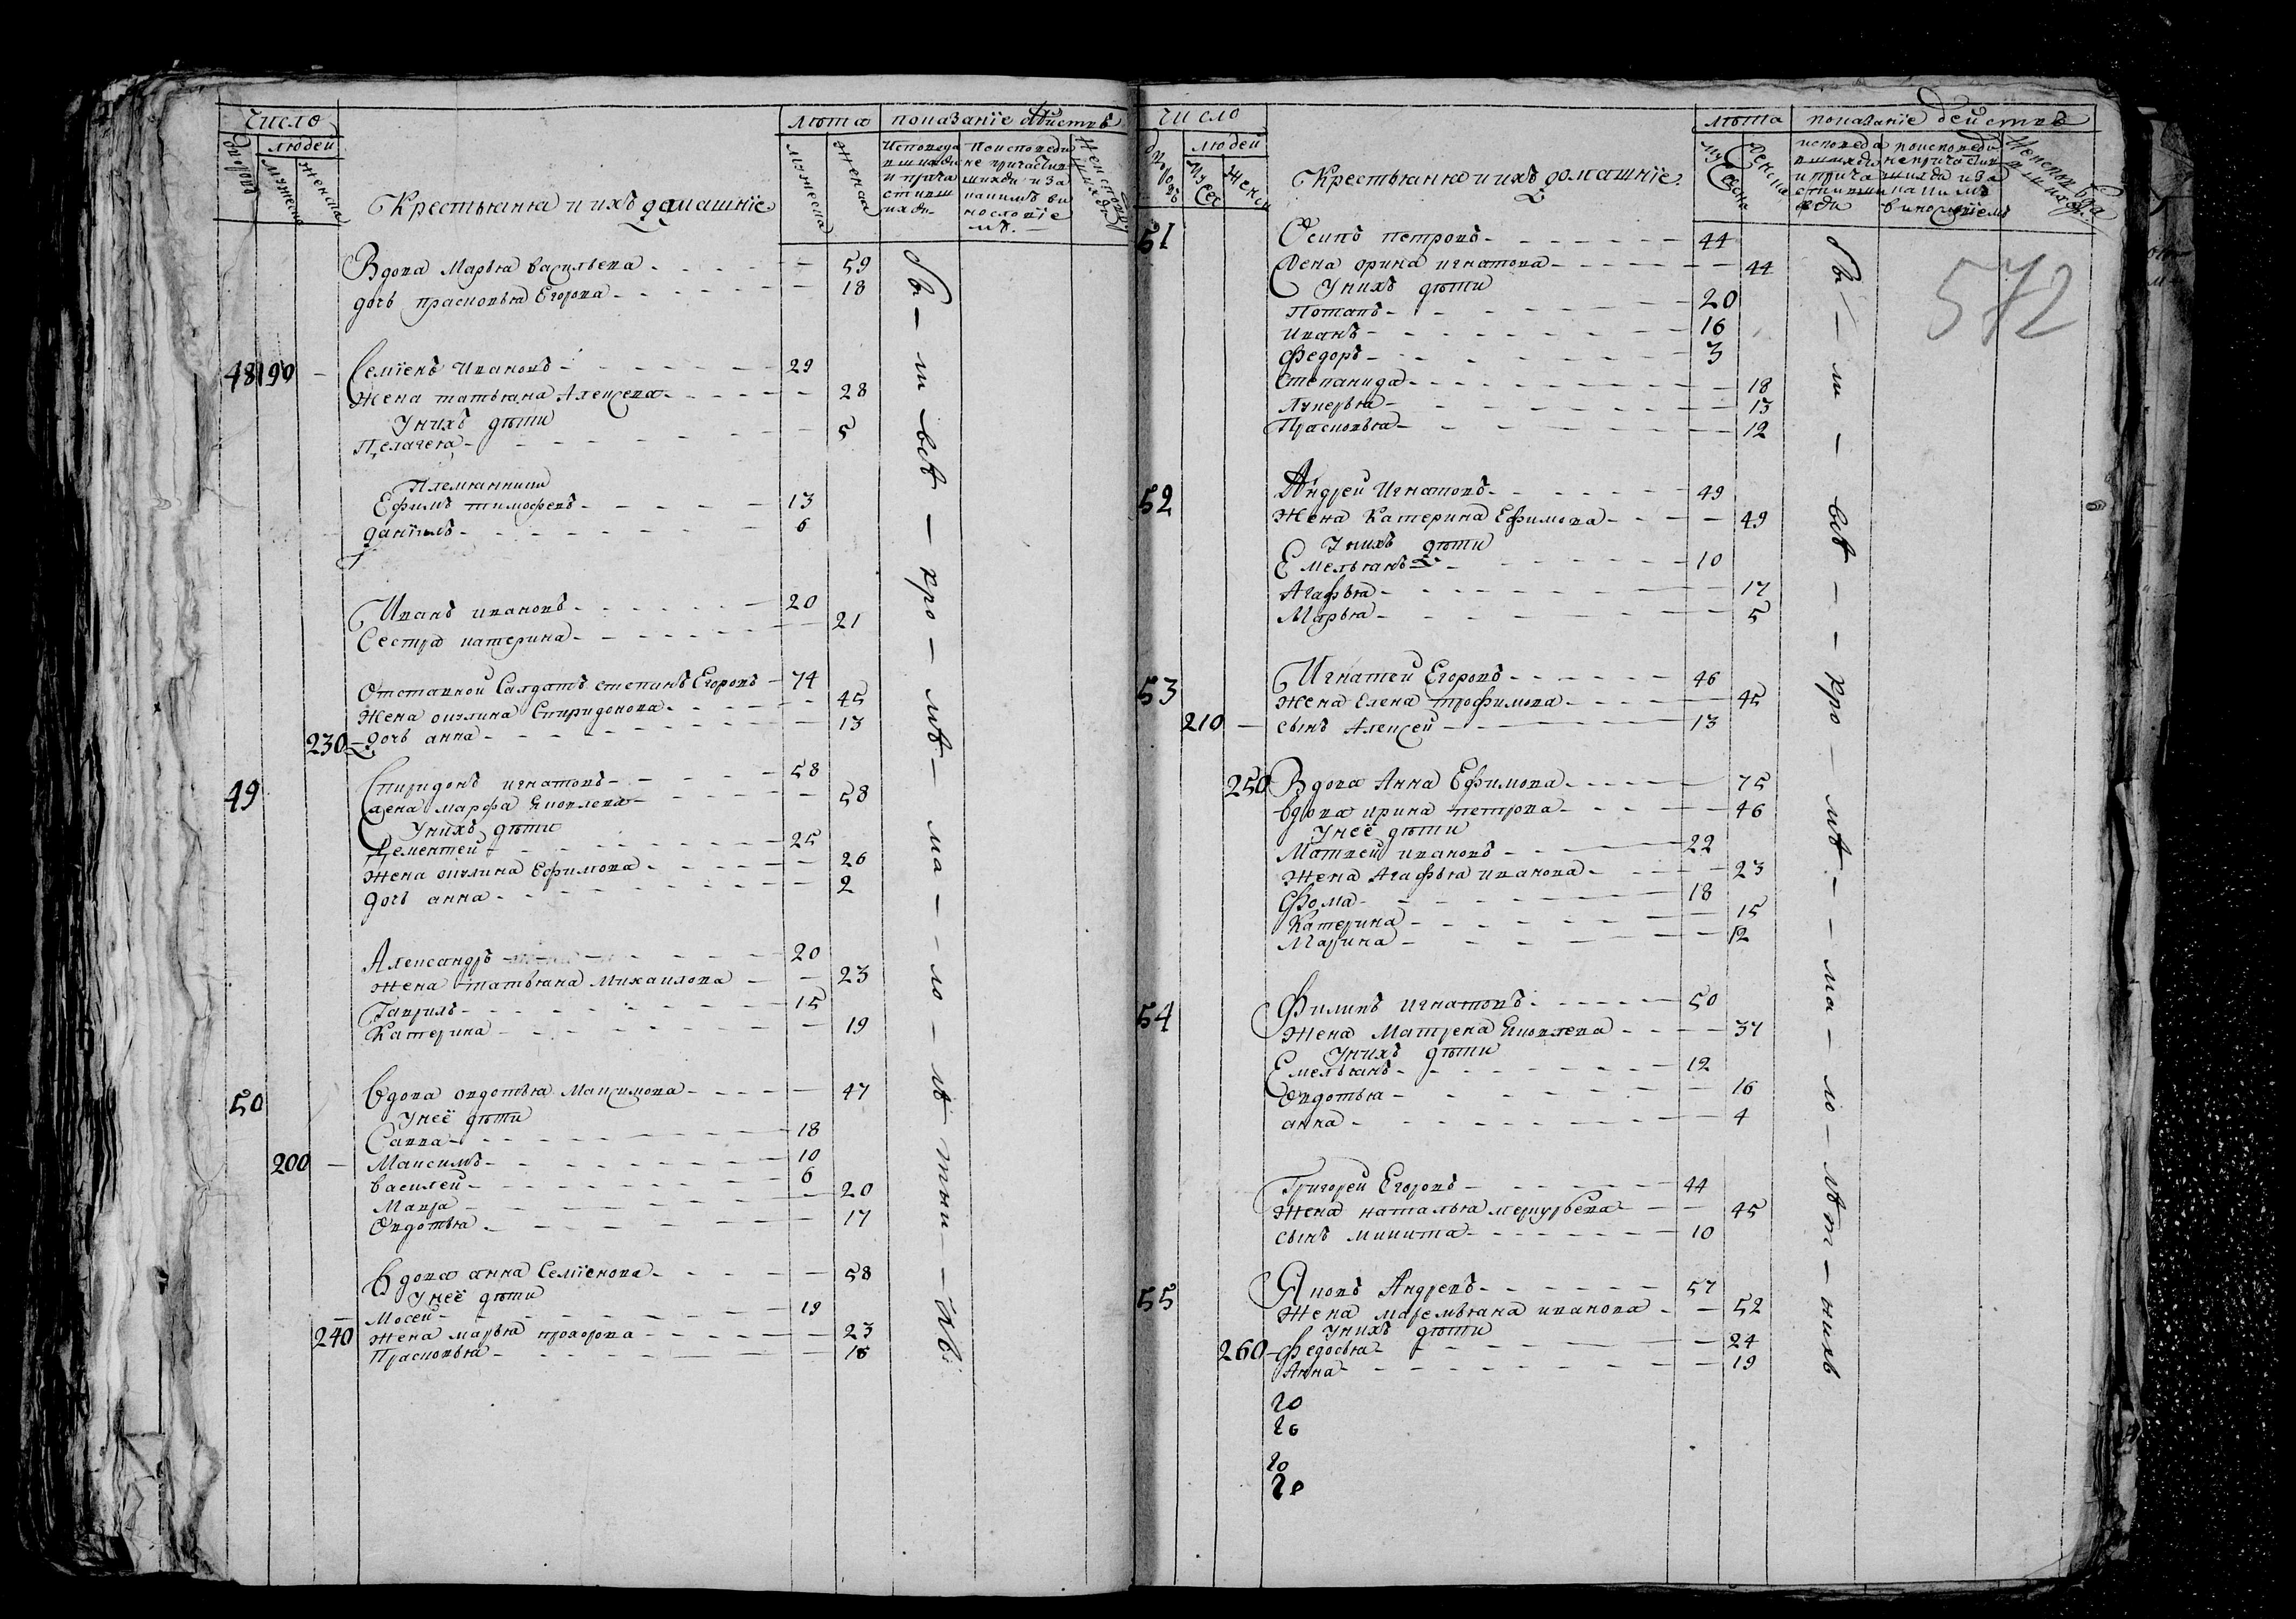 Число
людей
дворовъ
мужеска
женска
Крестьяня и ихъ домашнїе
лѣта
мужеска
женска
показанїе дѣйствъ
Вдова Марья Васильева 59
дочь прасковья Егорова 18
48 190 Семїенъ Ивановъ 29
Жена татьяна Алексева 28
У нихъ дѣти
Пелагея 5
Племянники
Ефимъ тимофеевъ 13
данїилъ 6
Иванъ ивановъ 20
Сестра катерина 21
Отставной Салдатъ степанъ Егоровъ 74
Жена окулина Спиридонова 45
230 дочь анна 13
49 Спиридонъ игнатовъ 58
Жена марфа Яковлева 58
У нихъ дѣти
Дементей 25
Жена окулина Ефимова 26
дочь анна 2
Александръ 20
Жена татьяна Михаилова 23
Гаврилъ 15
Катерина 19
50 Вдова овдотья Максимова 47
У неё дѣти
Савва 18
200 Максимъ 10
василей 6
Мавра 20
Овдотья 17
Вдова анна Семїенова 58
У неё дѣти
Мосей 19
240 Жена марья прохорова 23
Прасковья 16
Число
людей
Крестьяня и ихъ домашнїе
лѣта
показанїе дейстпъ
572
51 Осипъ петровъ 44
Жена орина игнатова 44
У нихъ дѣти
Потапъ 20
иванъ 16
Федоръ 3
Степанида 18
Лукерья 13
Прасковья 12
52 Андрей Игнатовъ 49
Жена Катерина Ефимова 49
У нихъ дѣти
Емельянъ 10
Агафья 17
Марья 5
53 Игнатей Егоровъ 46
Жена Елена трофимова 45
210 сынъ Алексей 13
250 Вдова Анна Ефимова 75
вдова ирина петрова 46
У неё дѣти
Матвей ивановъ 22
Жена Агафья иванова 23
Фома 18
Катерина 15
Марина 12
54 Филипъ игнатовъ 50
Жена Матрена Яковлева 37
У нихъ дѣти
Емельянъ 12
Овдотья 16
анна 4
Григорей Егоровъ 44
Жена наталья меркурьева 45
сынъ никита 10
55 Яковъ Андревъ 57
Жена маремьяна иванова 52
У нихъ дѣти
260 Федосья 24
Анна 19
20
26
20
20